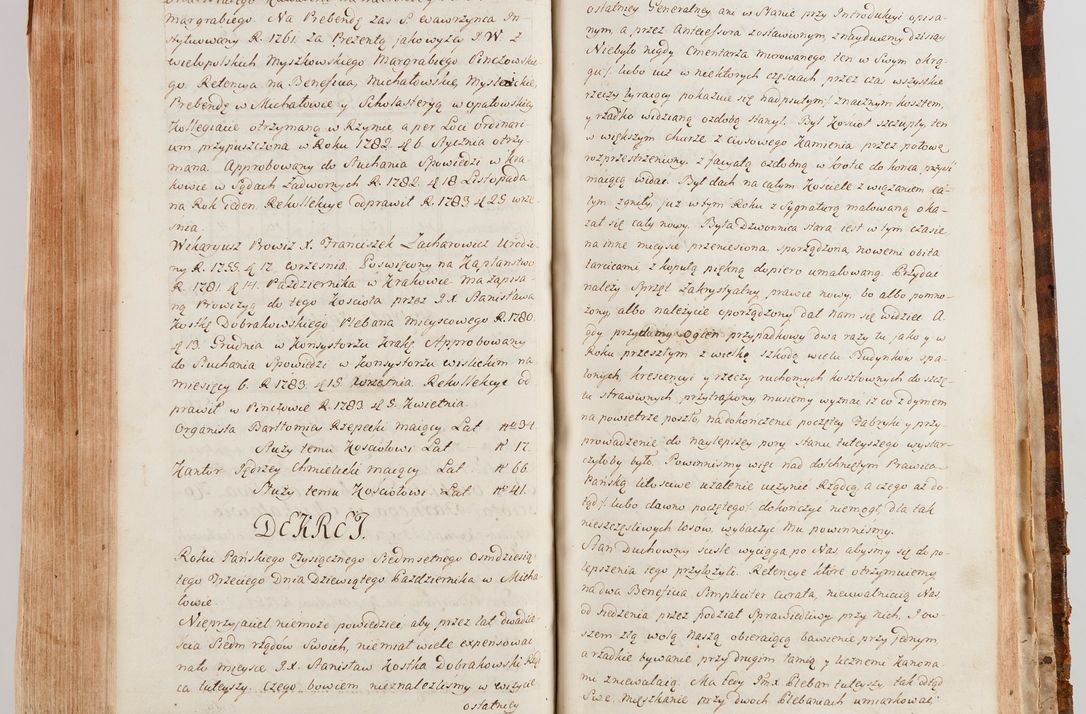 Margrabiego. Na Prebendę zas S. Wawrzynca In-
stytuowany R. 1761. za Prezentą jako wyżey J.W. z
wielopolskich Myszkowskiego Margrabiego Pinczowskie
go. Retencya na Beneficia, Michałowskie, Mysławickie,
Prebendę w Michałowie y Scholasteryą w opatowskiey
Kollegiacie otrzymaną w Rzymie, a per Loci Ordinari
um przypuszczona w Roku 1782. d 6. Stycznia otrzy-
mana. Approbowany do Słuchania Spowiedzi w Kra
kowie w Sądach Zadwornych R. 1782. d 18 Listopada
na Rok ieden. Rekollekcye odprawił R. 1783 d 25 wrze
snia.
Wikaryusz Prowiz. X. Franciszek Zacharowicz Urodzo
ny R. 1755. d 17. września. Poswięcony na Kapłanstwo
R. 1781. d 14. Pazdziernika w Krakowie ma zapisa
ną Prowizyą do tego Kosciola przez J.X. Stanisława
Kostkę Dobrakowskiego Plebana mieyscowego R. 1780.
d 13. Grudnia w Konsystorzu Krakô. Approbowany
do Słuchania Spowiedzi w Konsystorzu wislickim na
miesięcy 6. R. 1783. d 15. września. Rekollekcye od
prawił w Pinczowie R. 1783. d 5. Kwietnia.
Organista Bartłomiey Rzepecki maiący Lat N° 34.
Służy temu Kosciołowi Lat N° 17.
Kantor Jędrzey Chmielicki maiący Lat N° 66.
Służy temu Kosciołowi Lat N° 41.
DEKRET.
Roku Pańskiego Tysiącznego Siedmsetnego Osmdziesią
tego Trzeciego Dnia Dziewiątego Pazdziernika w Micha
łowie.
Nieprzyjaciel niemoże powiedziec aby przez lat dwadzie
scia Siedm rządow Swoich, niemiał wiele expensować
na to mieysce J.X. Stanisław Kostka Dobrakowski Rząd
ca tuteyszy. Czego bowiem nieznalezlismy w wizycie
ostatniey
ostatniey Generalney ani w Stanie przy Introdukcyi opisa-
nym, a przez Antecessora zostawionym znayduiemy dzisiay
Niebyło nigdy Cmentarza murowanego, ten w Swym okrą-
gu /: lubo iuż w niektorych częsciach przez czas wszystkie
rzeczy tyraiący pokazuie się nadpsutym :/ znacznym kosztem,
y rzadko widzianą ozdobą stanął. Był Kosciół szczupły, ten
w większym churze z ciosowego Kamienia przez połowę
rozprzestrzeniony z facyatą ozdobną w krotce do konca przyiść
maiącą widzę. Był dach na całym Kosciele z wiązaniem ca-
łym zgniły, juz w tym Roku z Sygnaturą malowaną oka-
zał się cały nowy. Była dzwonnica stara jest w tym czasie
na inne mieysce przeniesiona, sporządzona, nowemi obita
tarcicami, z kopułą piękną, dopiero umalowaną. Przydać
należy Sprzęt Zakrystyalny prawie nowy, bo albo pomno-
żony, albo należycie sporządzony dał nam się widzieć. A
gdy przydamy Ogien przypadkowy dwa razy tu jako y w
Roku przeszłym z wielką szkodą wielu Budynkow spa-
lonych, krescencyi y rzeczy ruchomych kosztownych do szczę-
tu strawionych, przytrafiony, musiemy wyznać iz co z dymem
na powietrze poszło, na dokończenie poczętey Fabryki y przy-
prowadzenie do naylepszey pory Stanu tuteyszego wystar-
czyłoby było. Powinnismy więc nad dotchniętym Prawicą
Pańską litosciwe użalenie uczynić Rządcą, a czego aż do-
tąd /: lubo dawno poczętego :/ dokończyć niemogł, dla tak
nieszczęsliwych losow, wybaczyć Mu powinnismy.
Stan Duchowny sciśle wyciąga po Nas, abysmy się do po-
lepszenia iego przyłożyli. Retencye ktore otrzymuiemy
na dwa Beneficia Simpliciter curata, nieuwalniaią Nas
od Siedzenia przez podział Sprawiedliwy przy nich, I ow-
szem złą wolą Naszą obieraiącą bawienie przy jednym
a rzadkie bywanie przy drugim łamią y liczneni Kanona
mi zniewalaią. Ma tedy Jmx Pleban tuteyszy tak odtąd
Swe Mieszkanie przy dwoch Plebaniach umiarkować